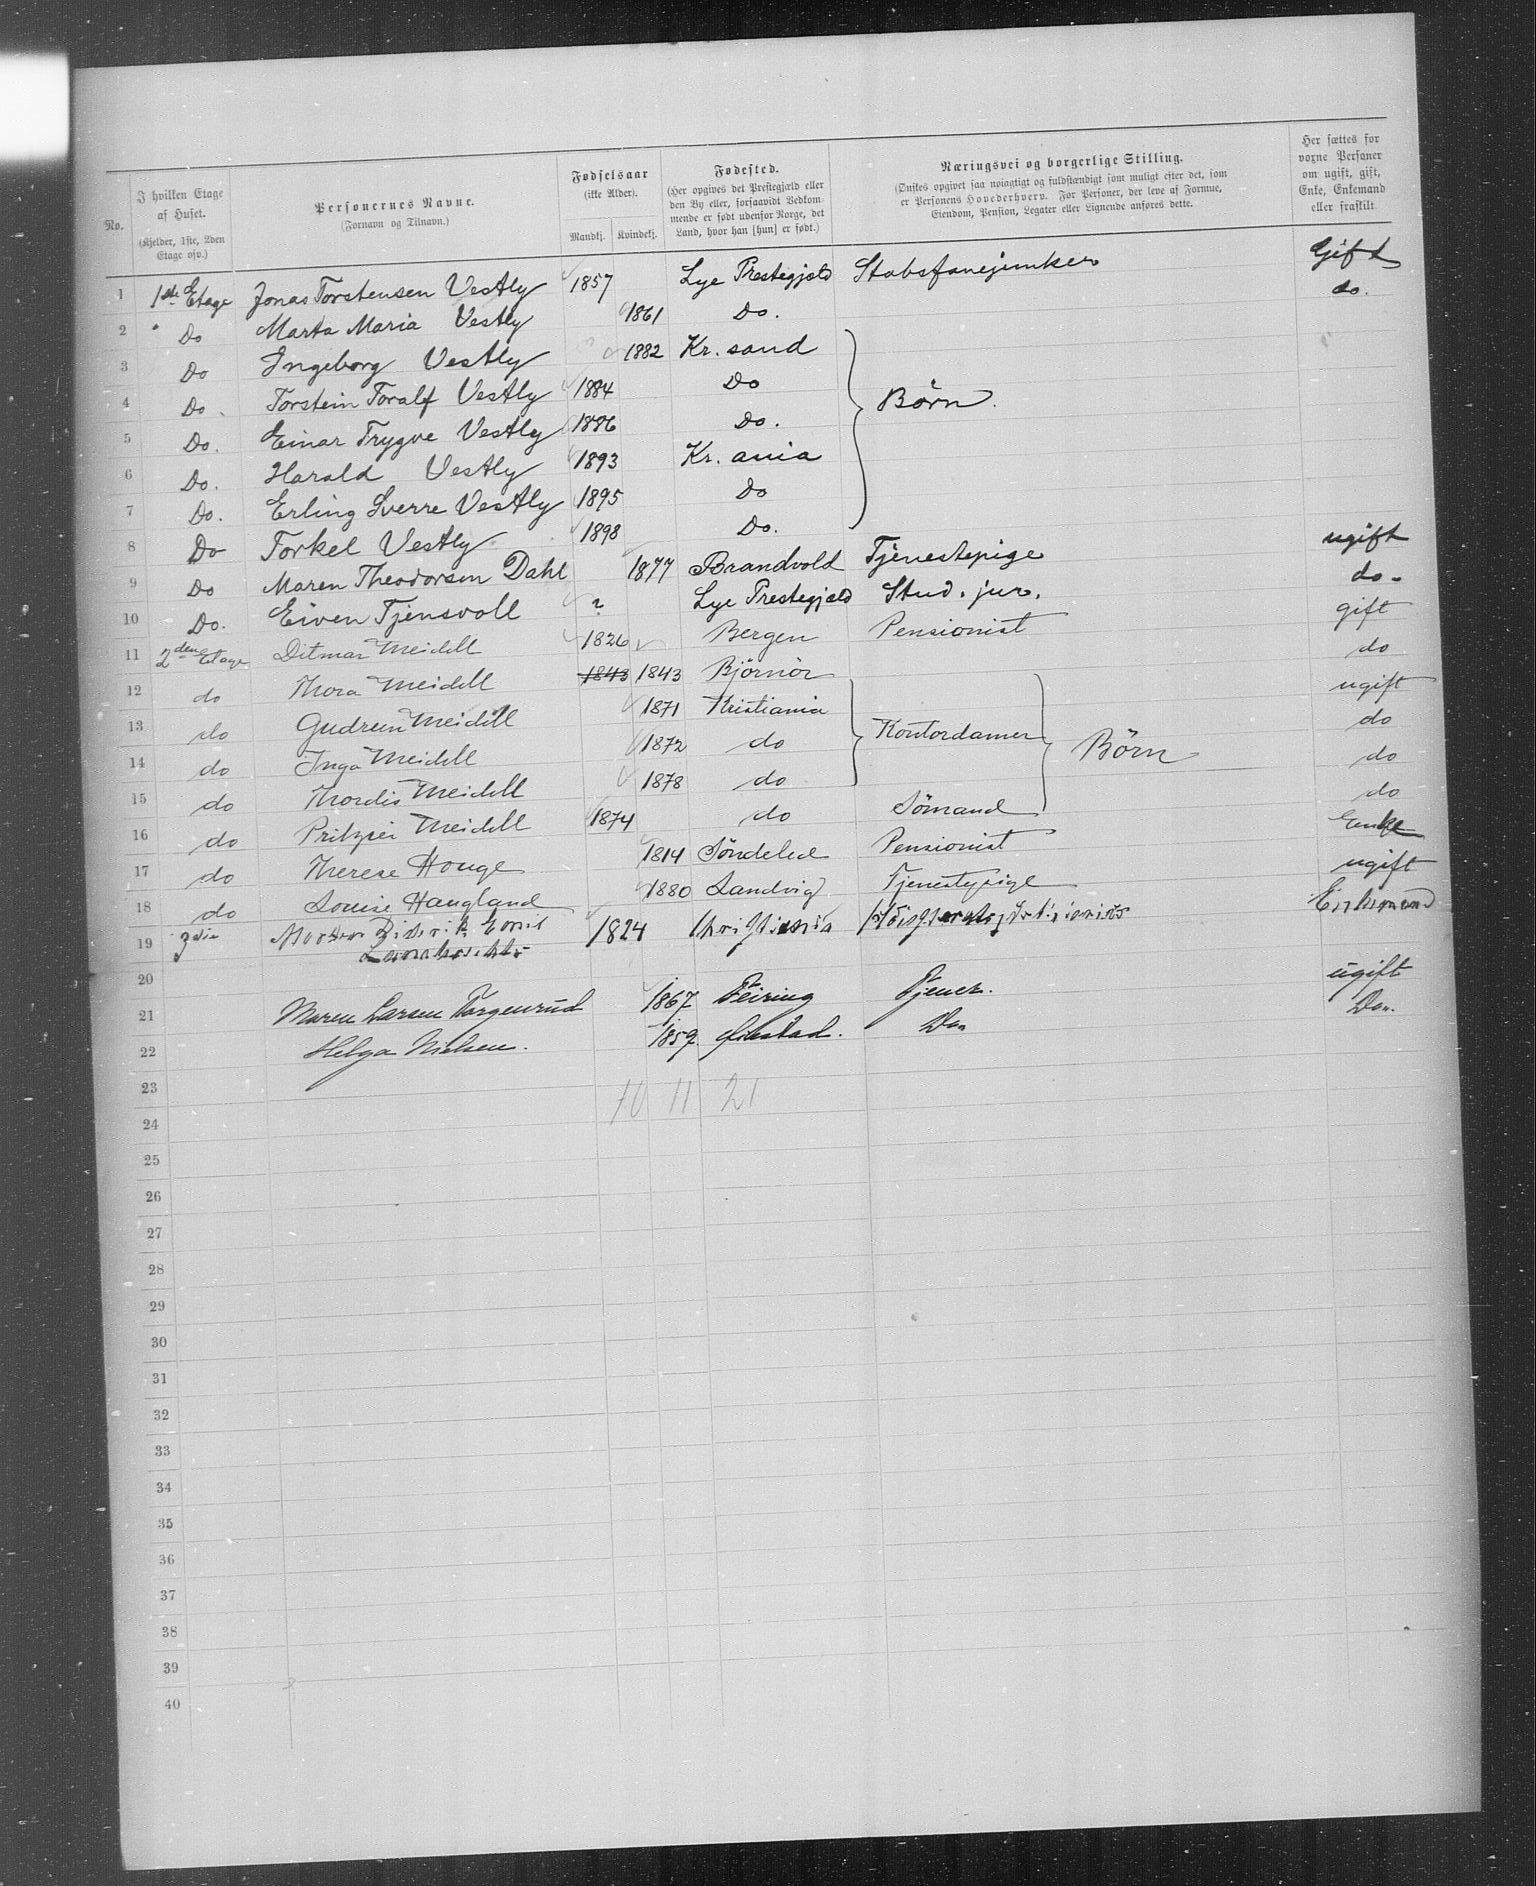 No.
I hvilken Etage af Huset.
(Kjelder, 1ste, 2den Etage osv.)
Personernes Navne.
(Fornavn og Tilnavn.)
Fødselsaar
(ikke Alder).
Mandkj. Kvindekj.
Fødested.
(Her opgives det Prestegjæld eller
den By eller, forsaavidt Vedkom-
mende er født udenfor Norge, det
Land, hvor han [hun] er født.)
Næringsvei og borgerlige Stilling.
(Ønskes opgivet saa nøiagtigt og fuldstændigt som muligt efter det, som
er Personens Hovederhverv. For Personer, der leve af Formue,
Eiendom, Pension, Legater eller Lignende anføres dette.
Her sættes for
voxne Personer
om ugift, gift,
Enke, Enkemand
eller fraskilt
1 1ste Etage Jonas Torstensen Vestly 1857 Lye Prestegjæld Stabsfanejunker Gift
2 Do Marta Maria Vestly 1861 Do. do.
3 Do Ingeborg Vestly 1882 Kr. sand
4 Do. Torstein Toralf Vestly 1884 Do Børn.
5 Do. Einar Trygve Vestly 1886 Do.
6 Do. Harald Vestly 1893 Kr. ania
7 Do. Erling Sverre Vestly 1895 Do
8 Do Torkel Vestly 1898 Do.
9 Do Maren Theodorsen Dahl 1877 Brandvold Tjenestepige ugift
10 Do. Eiven Tjensvoll ? Lye Prestegjæld Stud. jur. do.
11 2den Etage Ditmar Meidell 1826 Bergen Pensionist gift
12 do Thora Meidell 1843 1843 Bjørnör do
13 do Gudrun Meidell 1871 Kristiania ugift
14 do Inga Meidell 1872 do Kontordamer Börn do
15 do Thordis Meidell 1878 do do
16 do Meidell 1874 do Sömand do
17 do Therese Houge 1814 Söndeled Pensionist Enke
18 do Louise Haugland 1880 Landvig Tjenestepige ugift
19 3die Morten Emil 1824 Christiania Enkemand
20
21 Maren Larsen 1867 Feiring Tjener. ugift
22 Helga Nielsen. 1859 Do Do.
23
10 11 21
24
25
26
27
28
29
30
31
32
33
34
35
36
37
38
39
40